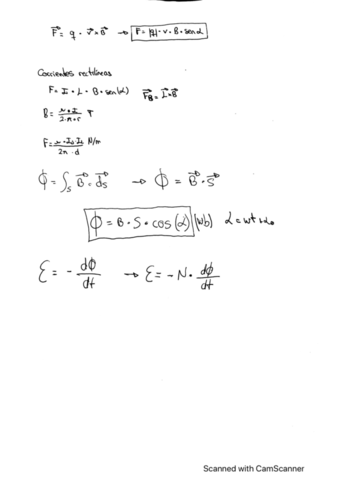 F⃗ = q · v⃗ x B⃗ → F = |q| · v · B · sen α
Corrientes rectilíneas
F = I · L · B · sen(α) F⃗B = I⃗ x B⃗
B = μ · I / 2 · π · r T
F = μ · I₁ I₂ / 2π · d N/m
ϕ = ∫s B⃗ · d⃗s → ϕ = B⃗ · S⃗
ϕ = B · S · cos(α) (Wb) α = wt + α₀
Ɛ = - dϕ/dt → Ɛ = - N · dϕ/dt
Scanned with CamScanner